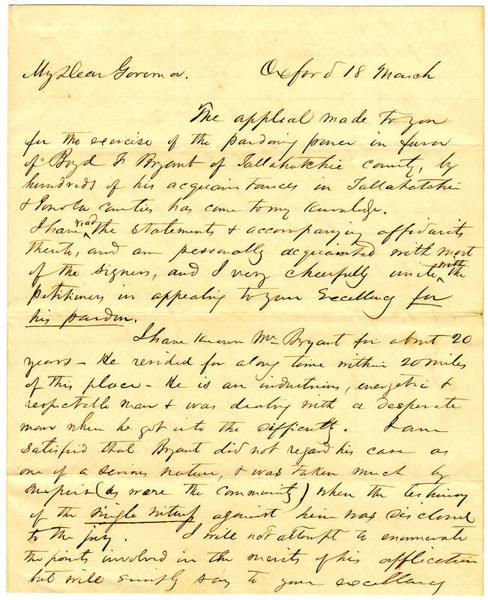 My Dear Governor.
Oxford 18 March
The appeal made to you
for the exercise of the pardoning power in favor
of Boyd F Bryant of Tallahatchie county, by
hundreds of his acquaintances in Tallahatchie
& Panola counties has come to my knowledge.
I have read the statements & accompanying affidavits
thereto, and am personally acquainted with most
of the signers, and I very cheerfully unite with the
petitioners in appealing to your Excellency for
his pardon.
I have known Mr Bryant for about 20
years - He resided for a long time within 20 miles
of this place - He is an industrious, energetic &
respectable man & was dealing with a desperate
man when he got into the difficulty. I am
satisfied that Bryant did not regard his case as
one of a serious nature, & was taken much by
surprise (as were the community) when the testimony
of the single witness against him was disclosed
to the jury. I will not attempt to enumerate
the points involved in the merits of his application
but will simply say to your excellency